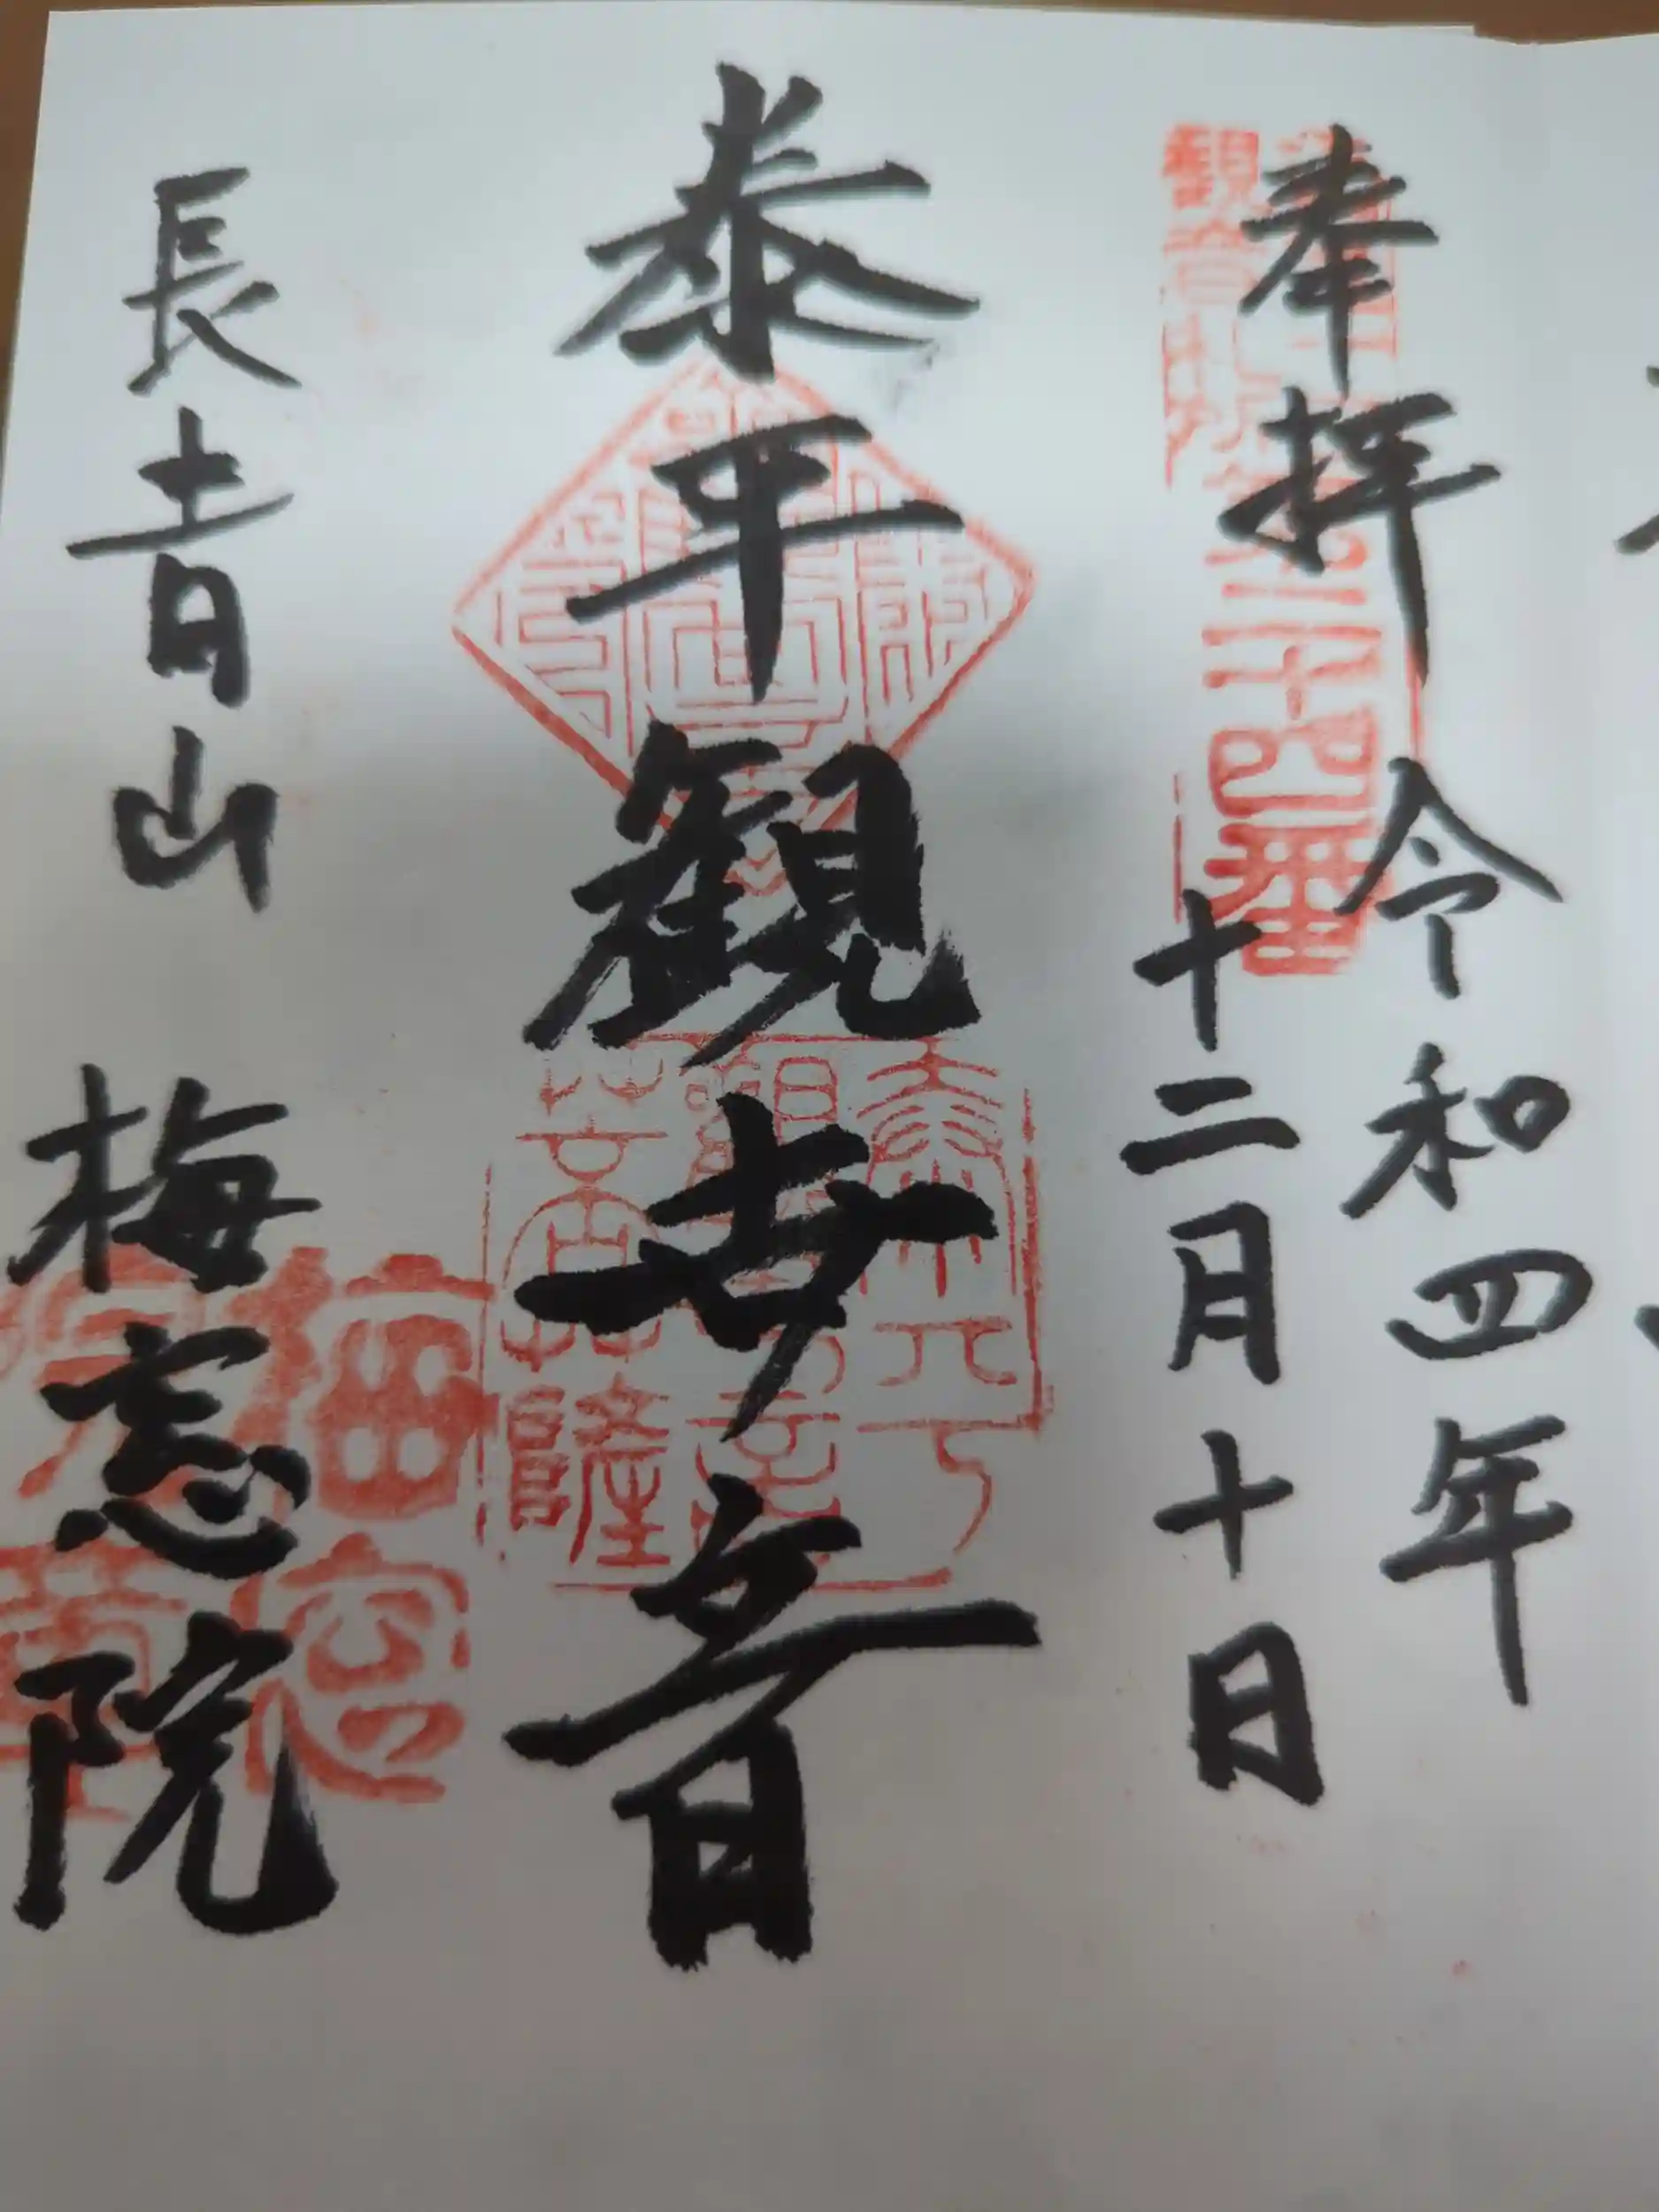 奉拝
令和四年
十二月十日
三十四番
泰平観世音
長青山
梅窓院